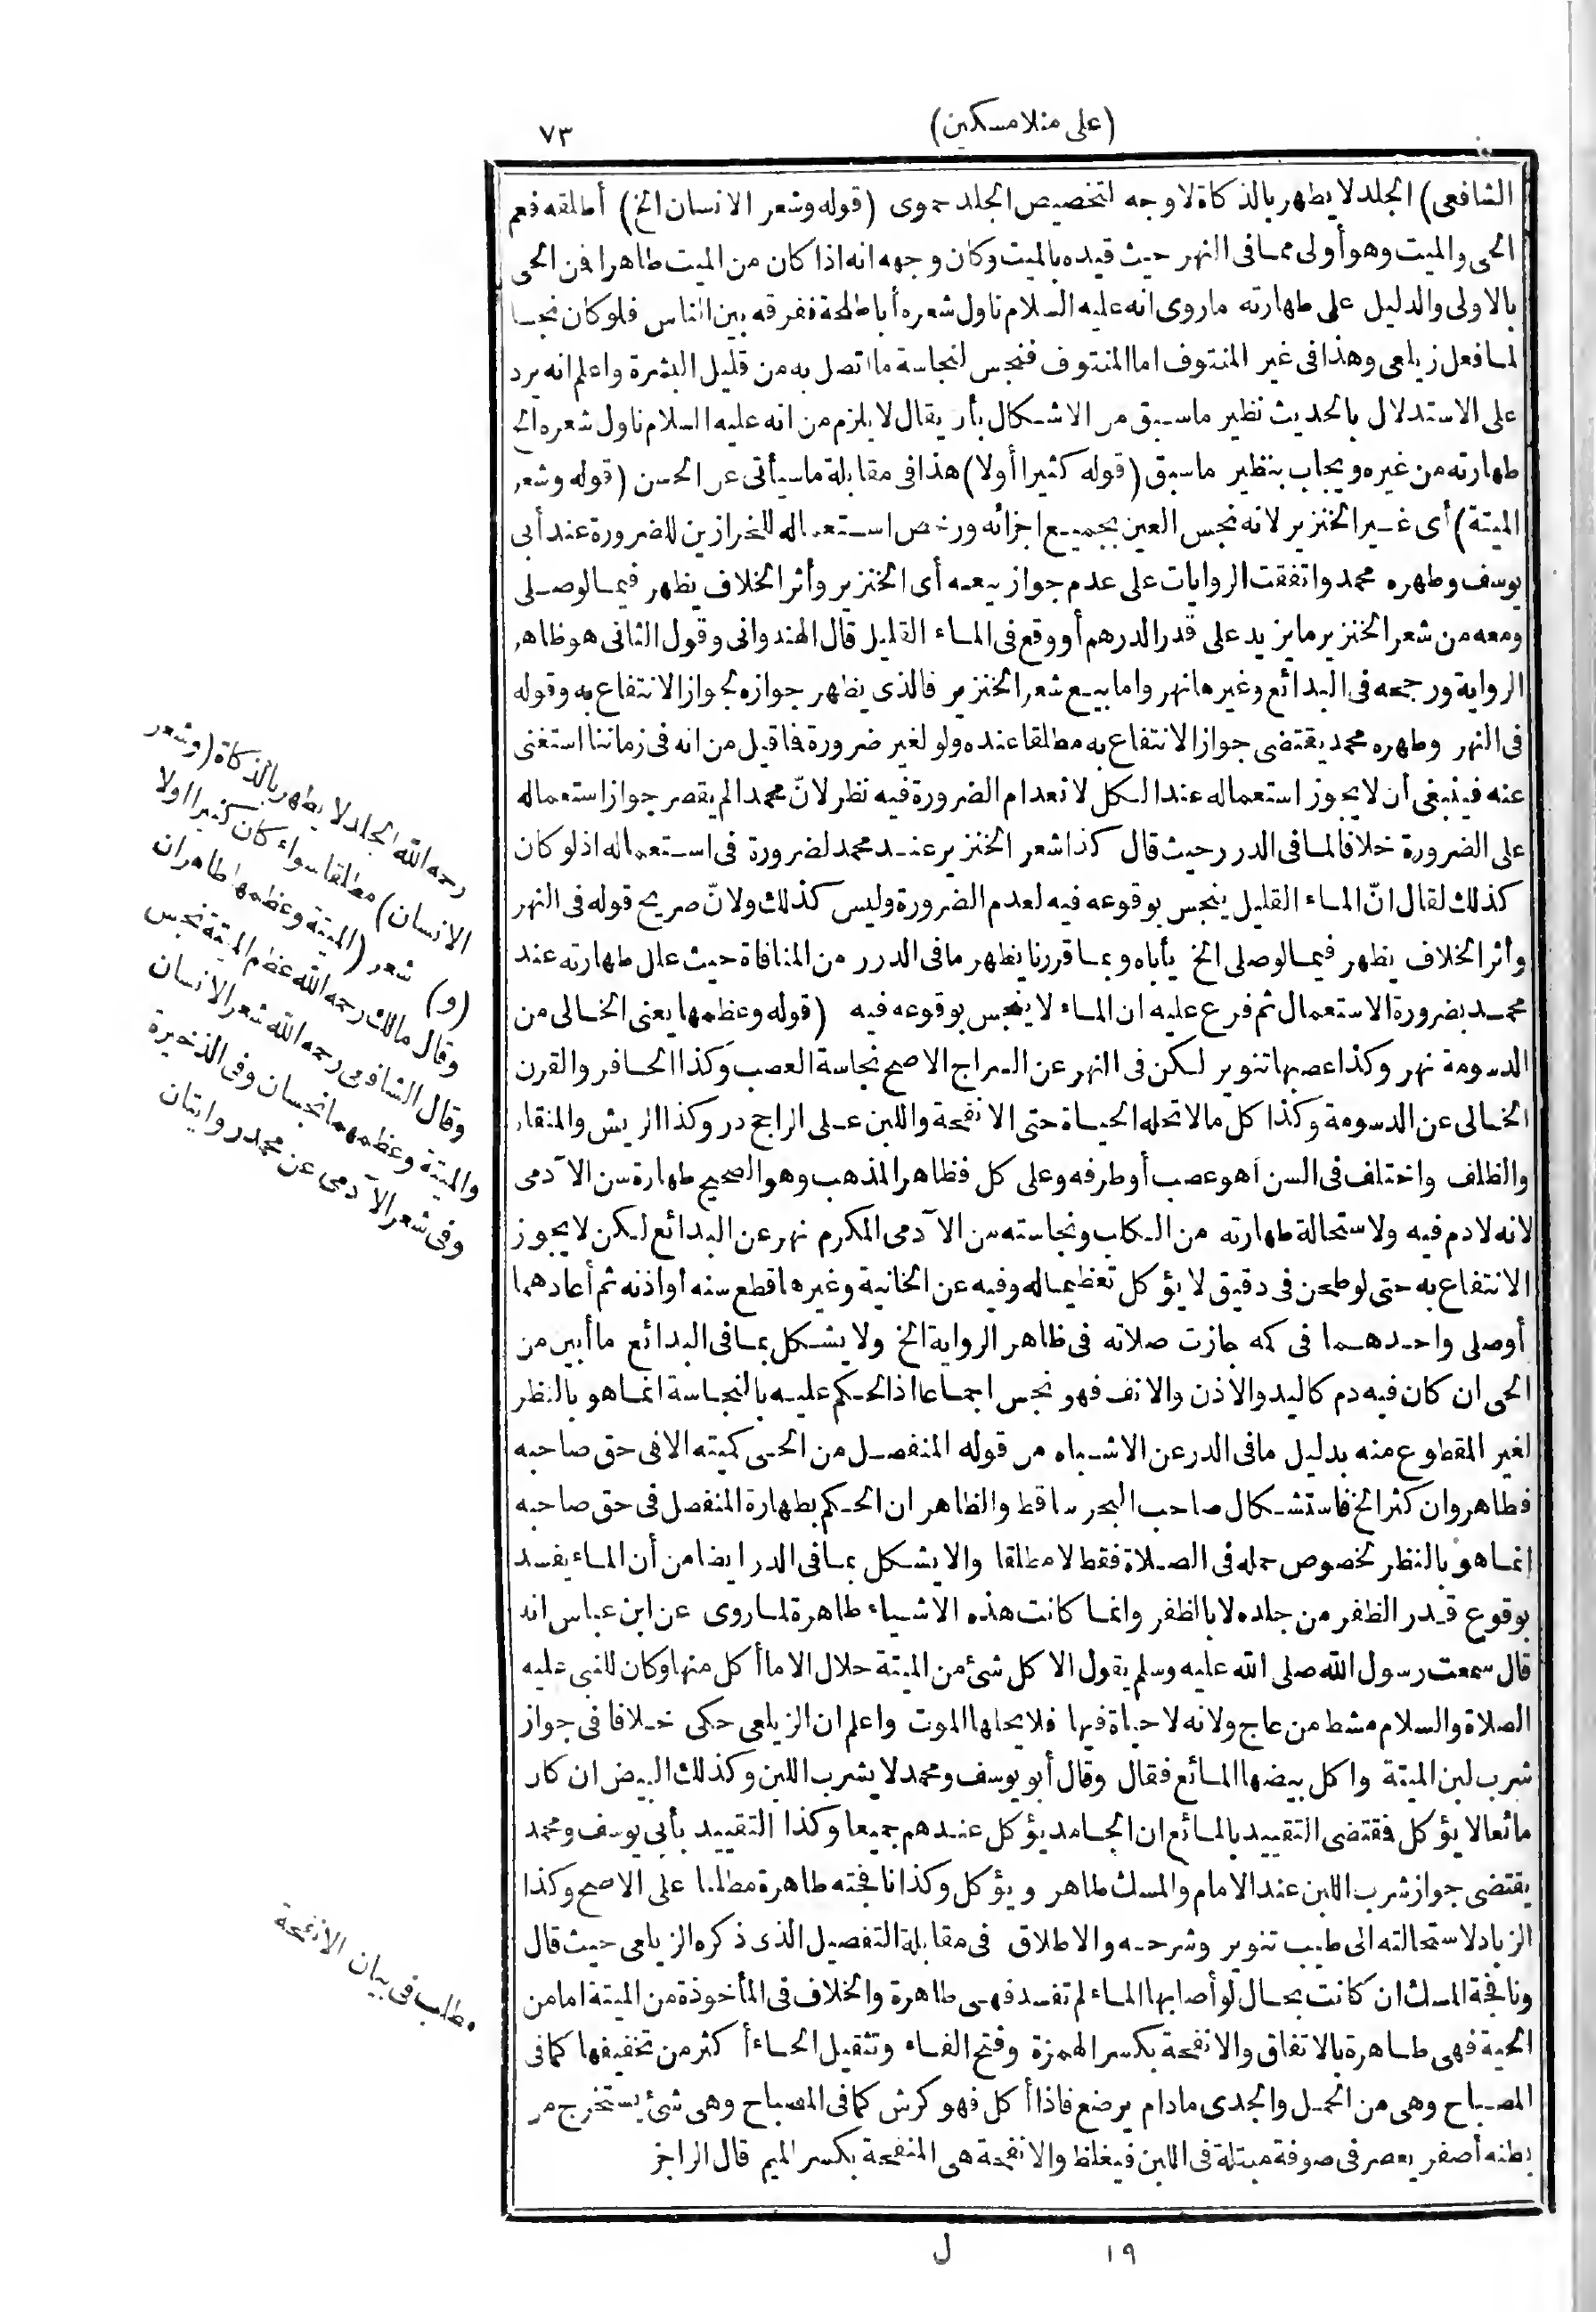 (على منلا مسكين)
٧٣
الشافعى) الجلد لا يطهر بالذكاة لا وجه لتخصيص الجلد حموى (قوله وشعر الانسان الخ) أطلقه فعم
الحى والميت وهو أولى مما فى النهر حيث قيده بالميت وكان وجهه انه اذا كان من الميت طاهرا فمن الحى
بالاولى والدليل على طهارته ماروى انه عليه السلام ناول شعره أبا طلحة ففرقه بين الناس فلو كان نجسا
لما فعل زيلعى وهذا فى غير المنتوف اما المنتوف فنجس لنجاسة ما اتصل به من قليل البشرة واعلم انه يرد
على الاستدلال بالحديث نظير ماسبق من الاشكال بأن يقال لا يلزم من انه عليه السلام ناول شعره الخ
طهارته من غيره ويجاب بنظير ماسبق (قوله كثيرا أولا) هذا فى مقابلة ما سيأتى عن الحسن (قوله وشعر
الميتة) أى غير الخنزير لانه نجس العين بجميع اجزائه ورخص استعماله للخرازين للضرورة عند أبى
يوسف وطهره محمد واتفقت الروايات على عدم جواز بيعه أى الخنزير وأثر الخلاف يظهر فيما لو صلى
ومعه من شعر الخنزير ما يزيد على قدر الدرهم أو وقع فى الماء القليل قال الهندوانى وقول الثانى هو ظاهر
الرواية ورجحه فى البدائع وغيرها نهر واما بيع شعر الخنزير فالذى يظهر جوازه لجواز الانتفاع به وقوله
فى النهر وطهره محمد يقتضى جواز الانتفاع به مطلقا عنده ولو لغير ضرورة فما قيل من انه فى زماننا استغنى
عنه فينبغى أن لا يجوز استعماله عند الكل لانعدام الضرورة فيه نظر لانّ محمدا لم يقصر جواز استعماله
على الضرورة خلافا لما فى الدرر حيث قال كذا شعر الخنزير عند محمد لضرورة فى استعماله اذ لو كان
كذلك لقال انّ الماء القليل ينجس بوقوعه فيه لعدم الضرورة وليس كذلك ولانّ صريح قوله فى النهر
وأثر الخلاف يظهر فيما لو صلى الخ يأباه وبما قررنا يظهر ما فى الدرر من المنافاة حيث علل طهارته عند
محمد بضرورة الاستعمال ثم فرع عليه ان الماء لا ينجس بوقوعه فيه (قوله وعظمها يعنى الخالى من
الدسومة نهر وكذا عصبها تنوير لكن فى النهر عن السراج الاصح نجاسة العصب وكذا الحافر والقرن
الخالى عن الدسومة وكذا كل ما لا تحله الحياة حتى الانفحة واللبن على الراجح در وكذا الريش والمنقار
والظلف واختلف فى السن أهو عصب أو طرفه وعلى كل فظاهر المذهب وهو الصحيح طهارة سن الآدمى
لانه لا دم فيه ولاستحالة طهارته من الكلب ونجاسته من الآدمى المكرم نهر عن البدائع لكن لا يجوز
الانتفاع به حتى لو طحن فى دقيق لا يؤكل تعظيما له وفيه عن الخانية وغيرها قطع سنه أو اذنه ثم أعادهما
أو صلى واحدهما فى كمه جازت صلاته فى ظاهر الرواية الخ ولا يشكل بما فى البدائع ما أبين من
الحى ان كان فيه دم كاليد والاذن والانف فهو نجس اجماعا اذ الحكم عليه بالنجاسة انما هو بالنظر
لغير المقطوع منه بدليل ما فى الدر عن الاشباه من قوله المنفصل من الحى كميتته الا فى حق صاحبه
فطاهر وان كثر الخ فاستشكال صاحب البحر ساقط والظاهر ان الحكم بطهارة المنفصل فى حق صاحبه
انما هو بالنظر لخصوص حمله فى الصلاة فقط لا مطلقا والا يشكل بما فى الدر ايضا من أن الماء يفسد
بوقوع قدر الظفر من جلده لا بالظفر وانما كانت هذه الاشياء طاهرة لما روى عن ابن عباس انه
قال سمعت رسول الله صلى الله عليه وسلم يقول الا كل شئ من الميتة حلال الا ما أكل منها وكان للنبى عليه
الصلاة والسلام مشط من عاج ولانه لا حياة فيها فلا يحلها الموت واعلم ان الزيلعى حكى خلافا فى جواز
شرب لبن الميتة واكل بيضها المائع فقال وقال أبو يوسف ومحمد لا يشرب اللبن وكذلك البيض ان كان
مائعا لا يؤكل فقتضى التقييد بالمائع ان الجامد يؤكل عندهم جميعا وكذا التقييد بأبى يوسف ومحمد
يقتضى جواز شرب اللبن عند الامام والمسك طاهر ويؤكل وكذا نافجته طاهرة مطلقا على الاصح وكذا
الزباد لاستحالته الى طيب تنوير وشرحه والاطلاق فى مقابلة التفصيل الذى ذكره الزيلعى حيث قال
ونافجة المسك ان كانت بحال لو أصابها الماء لم تفسد فهى طاهرة والخلاف فى المأخوذة من الميتة اما من
الحية فهى طاهرة بالاتفاق والانفحة بكسر الهمزة وفتح الفاء وتثقيل الحاء أكثر من تخفيفها كما فى
المصباح وهى من الحمل والجدى مادام يرضع فاذا أكل فهو كرش كما فى المصباح وهى شئ يستخرج من
بطنه أصفر يعصر فى صوفة مبتلة فى اللبن فيغلظ والانفحة هى المنفحة بكسر الميم قال الراجز
رحمه الله الجلد لا يطهر بالذكاة (وشعر
الانسان) مطلقا سواء كان كثيرا اولا
(و) شعر (الميتة وعظمها طاهران
وقال مالك رحمه الله عظم الميتة نجس
وقال الشافعى رحمه الله شعر الانسان
والميتة وعظمهما نجسان وفى الذخيرة
وفى شعر الآدمى عن محمد روايتان
مطلب فى بيان الانفحة
١٩
ل